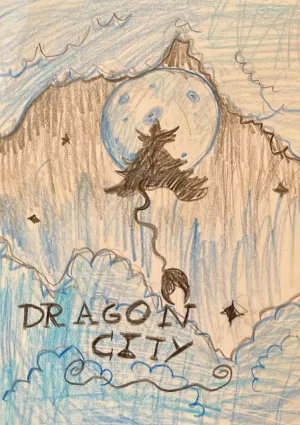 DRAGON
CITY